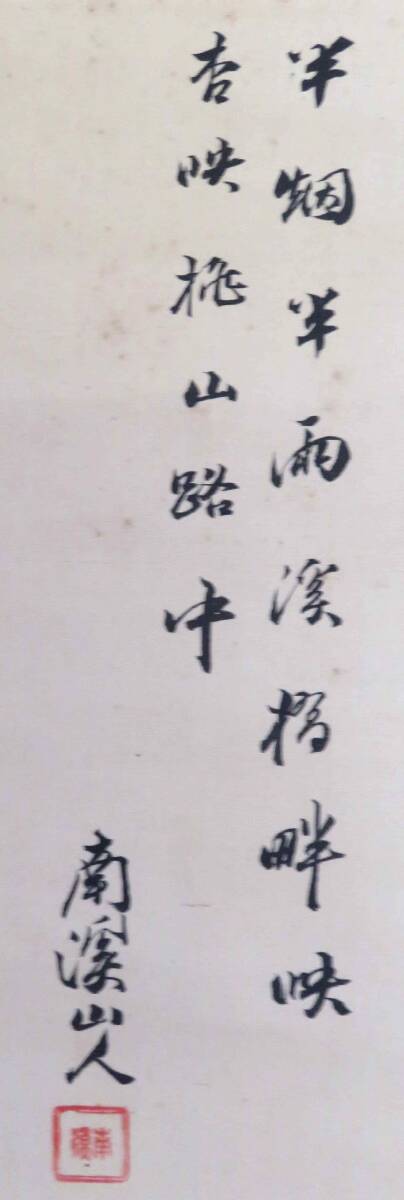 半烟半雨溪橋畔映
杏映桃山路中
南溪山人